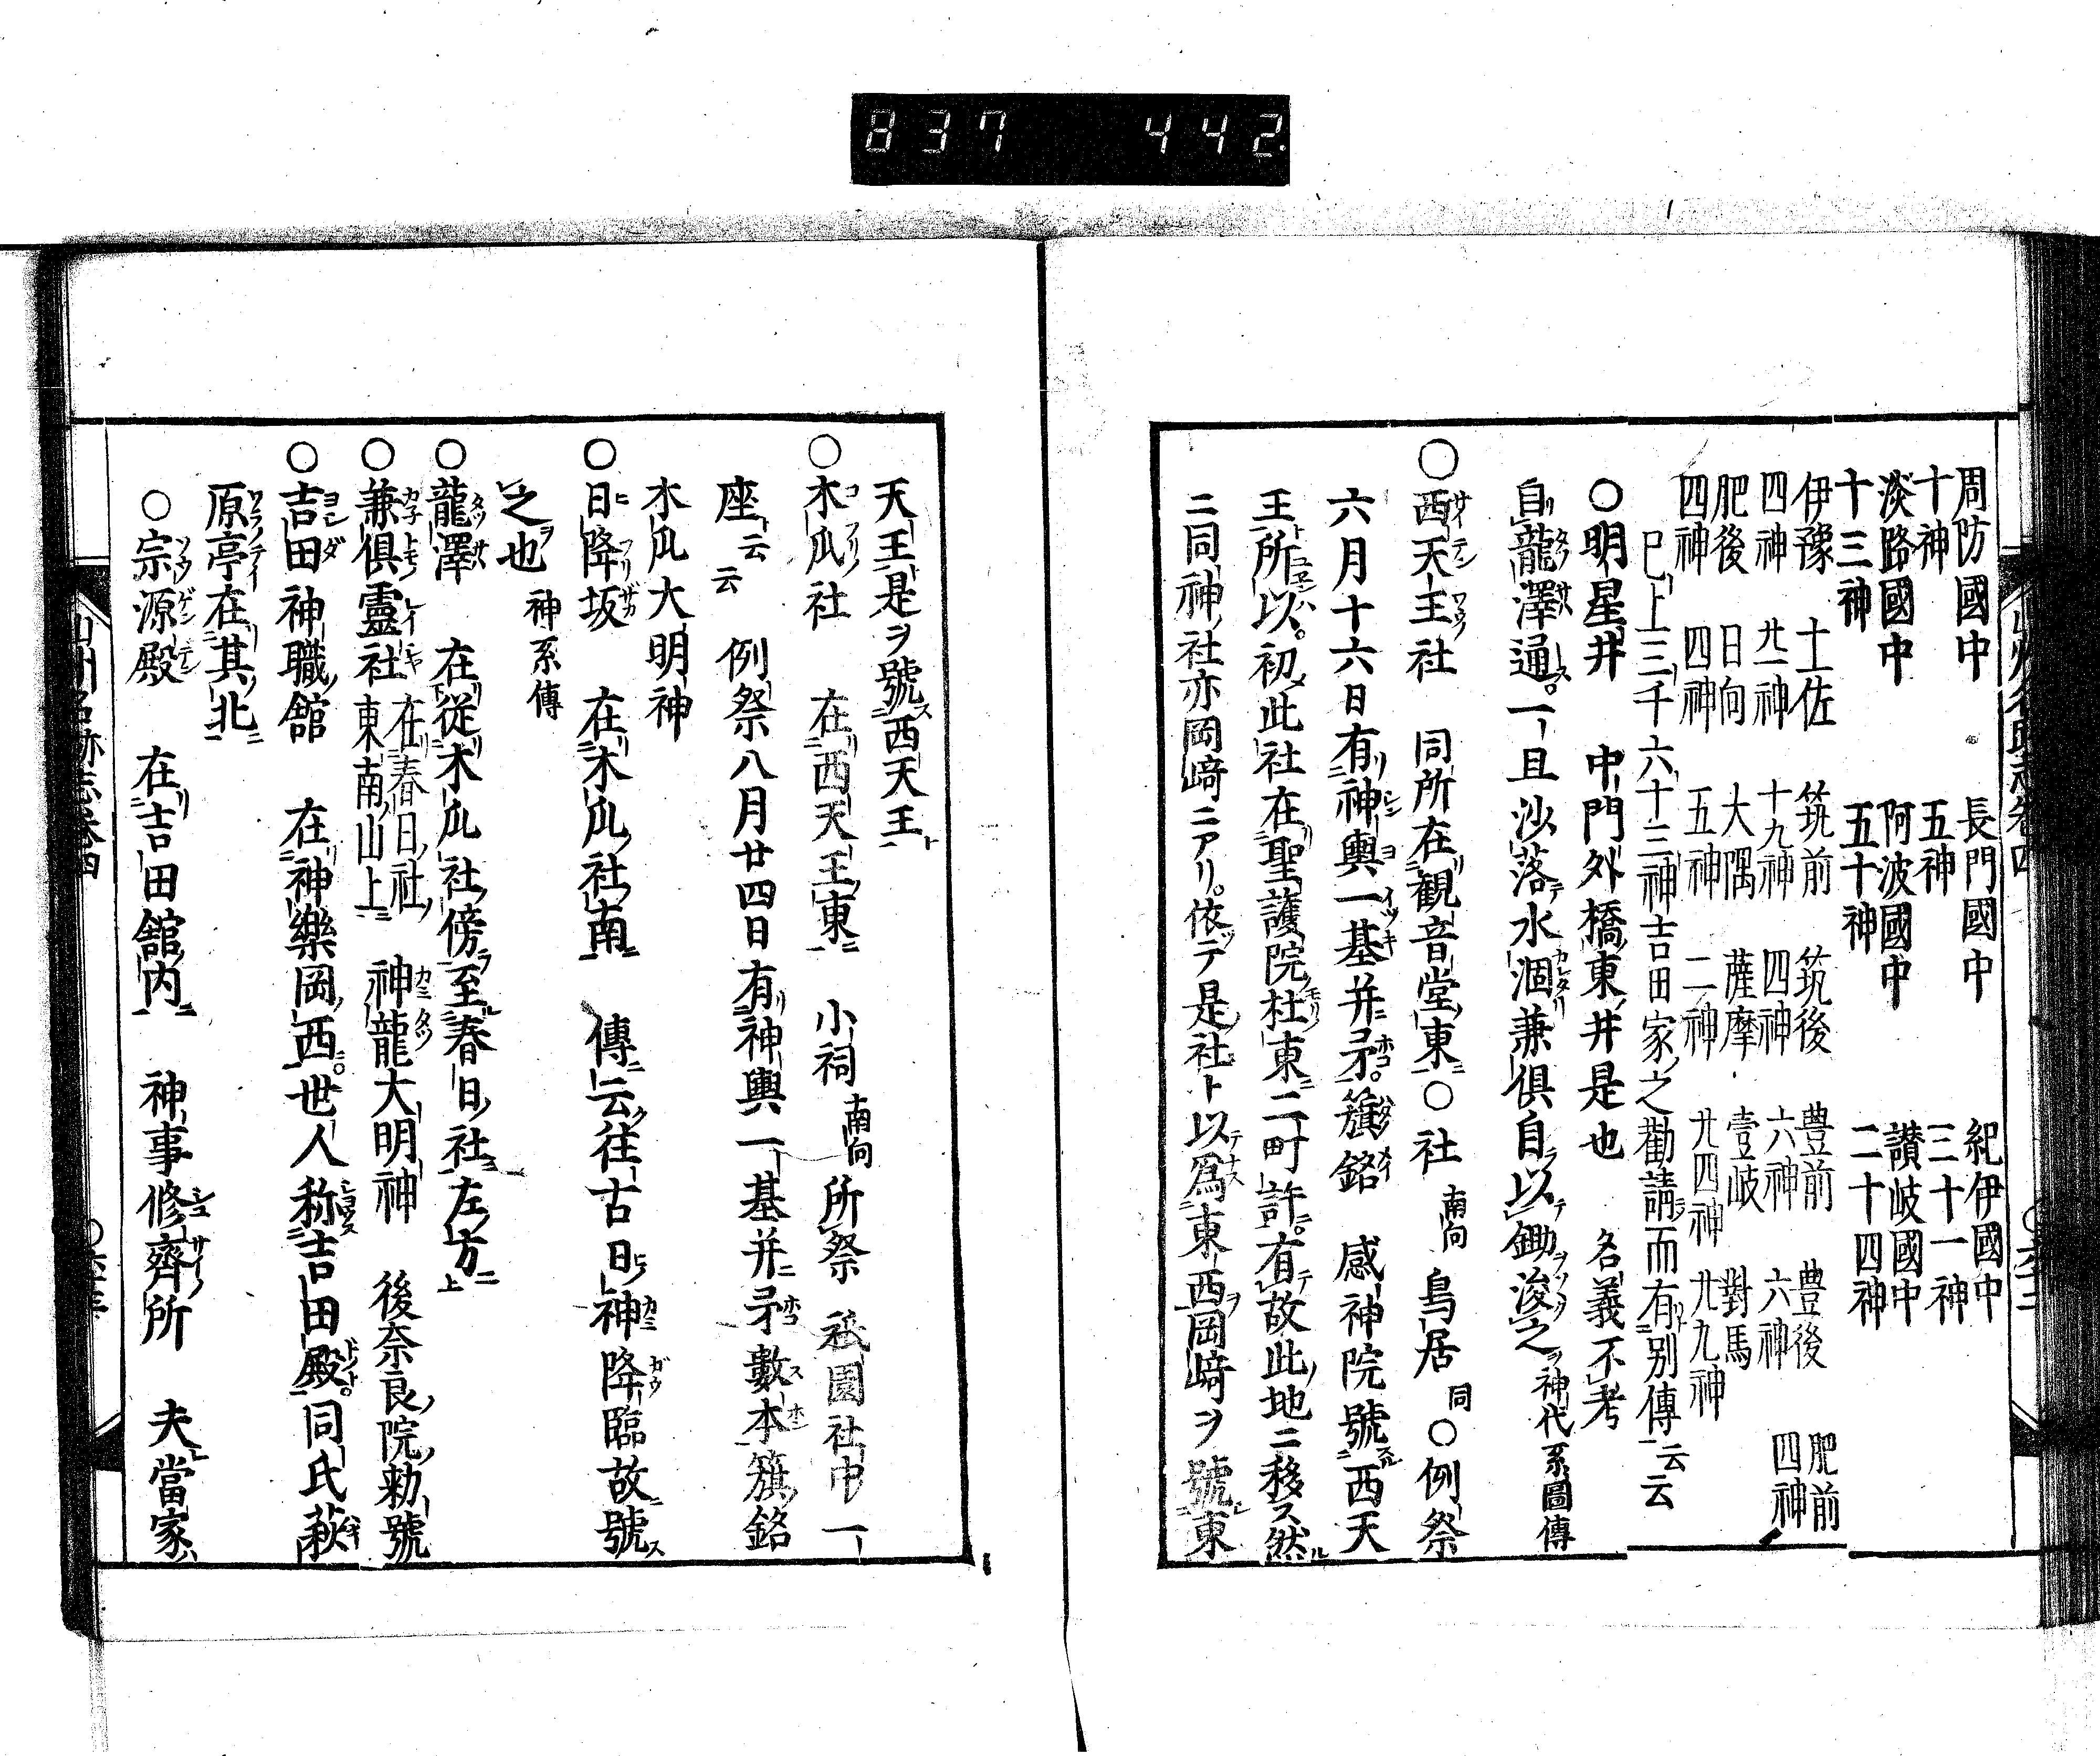 837 442
周防國中 長門國中 紀伊國中
十神 五神 三十一神
淡路國中 阿波國中 讃岐國中
十三神 五十神 二十四神
伊豫 土佐 筑前 筑後 豊前 豊後 肥前
四神 廿一神 十九神 四神 六神 六神 四神
肥後 日向 大隅 薩摩 壹岐 對馬
四神 四神 五神 二神 廿四神 廿九神
已上三千六十三神吉田家之勸請而有別傳云云
○明星井 中門外橋東井是也 名義不考
自龍澤通一且沙落水涸兼俱自以鋤浚之神代系圖傳
○西天王社 同所在觀音堂東○社南向 鳥居同○例祭
六月十六日有神輿一基并矛簱銘 感神院號西天
王所以初此社在聖護院杜東二町許有故此地ニ移ス然
ニ同神社亦岡﨑ニアリ依テ是社ト以爲東西岡﨑ヲ號東
天王是ヲ號西天王
○木瓜社 在西天王東 小祠南向 所祭祇園社中一
座云云 例祭八月廿四日有神輿一基并矛數本簱銘
木瓜大明神
○日降坂 在木瓜社南 傳云往古日神降臨故號
之也 神系傳
○龍澤 在從木瓜社傍至春日社左方上
○兼俱靈社在春日社東南山上 神龍大明神 後奈良院勅號
○吉田神職舘 在神樂岡西世人称吉田殿同氏萩
原亭在其北
○宗源殿 在吉田舘内 神事修齊所 夫當家